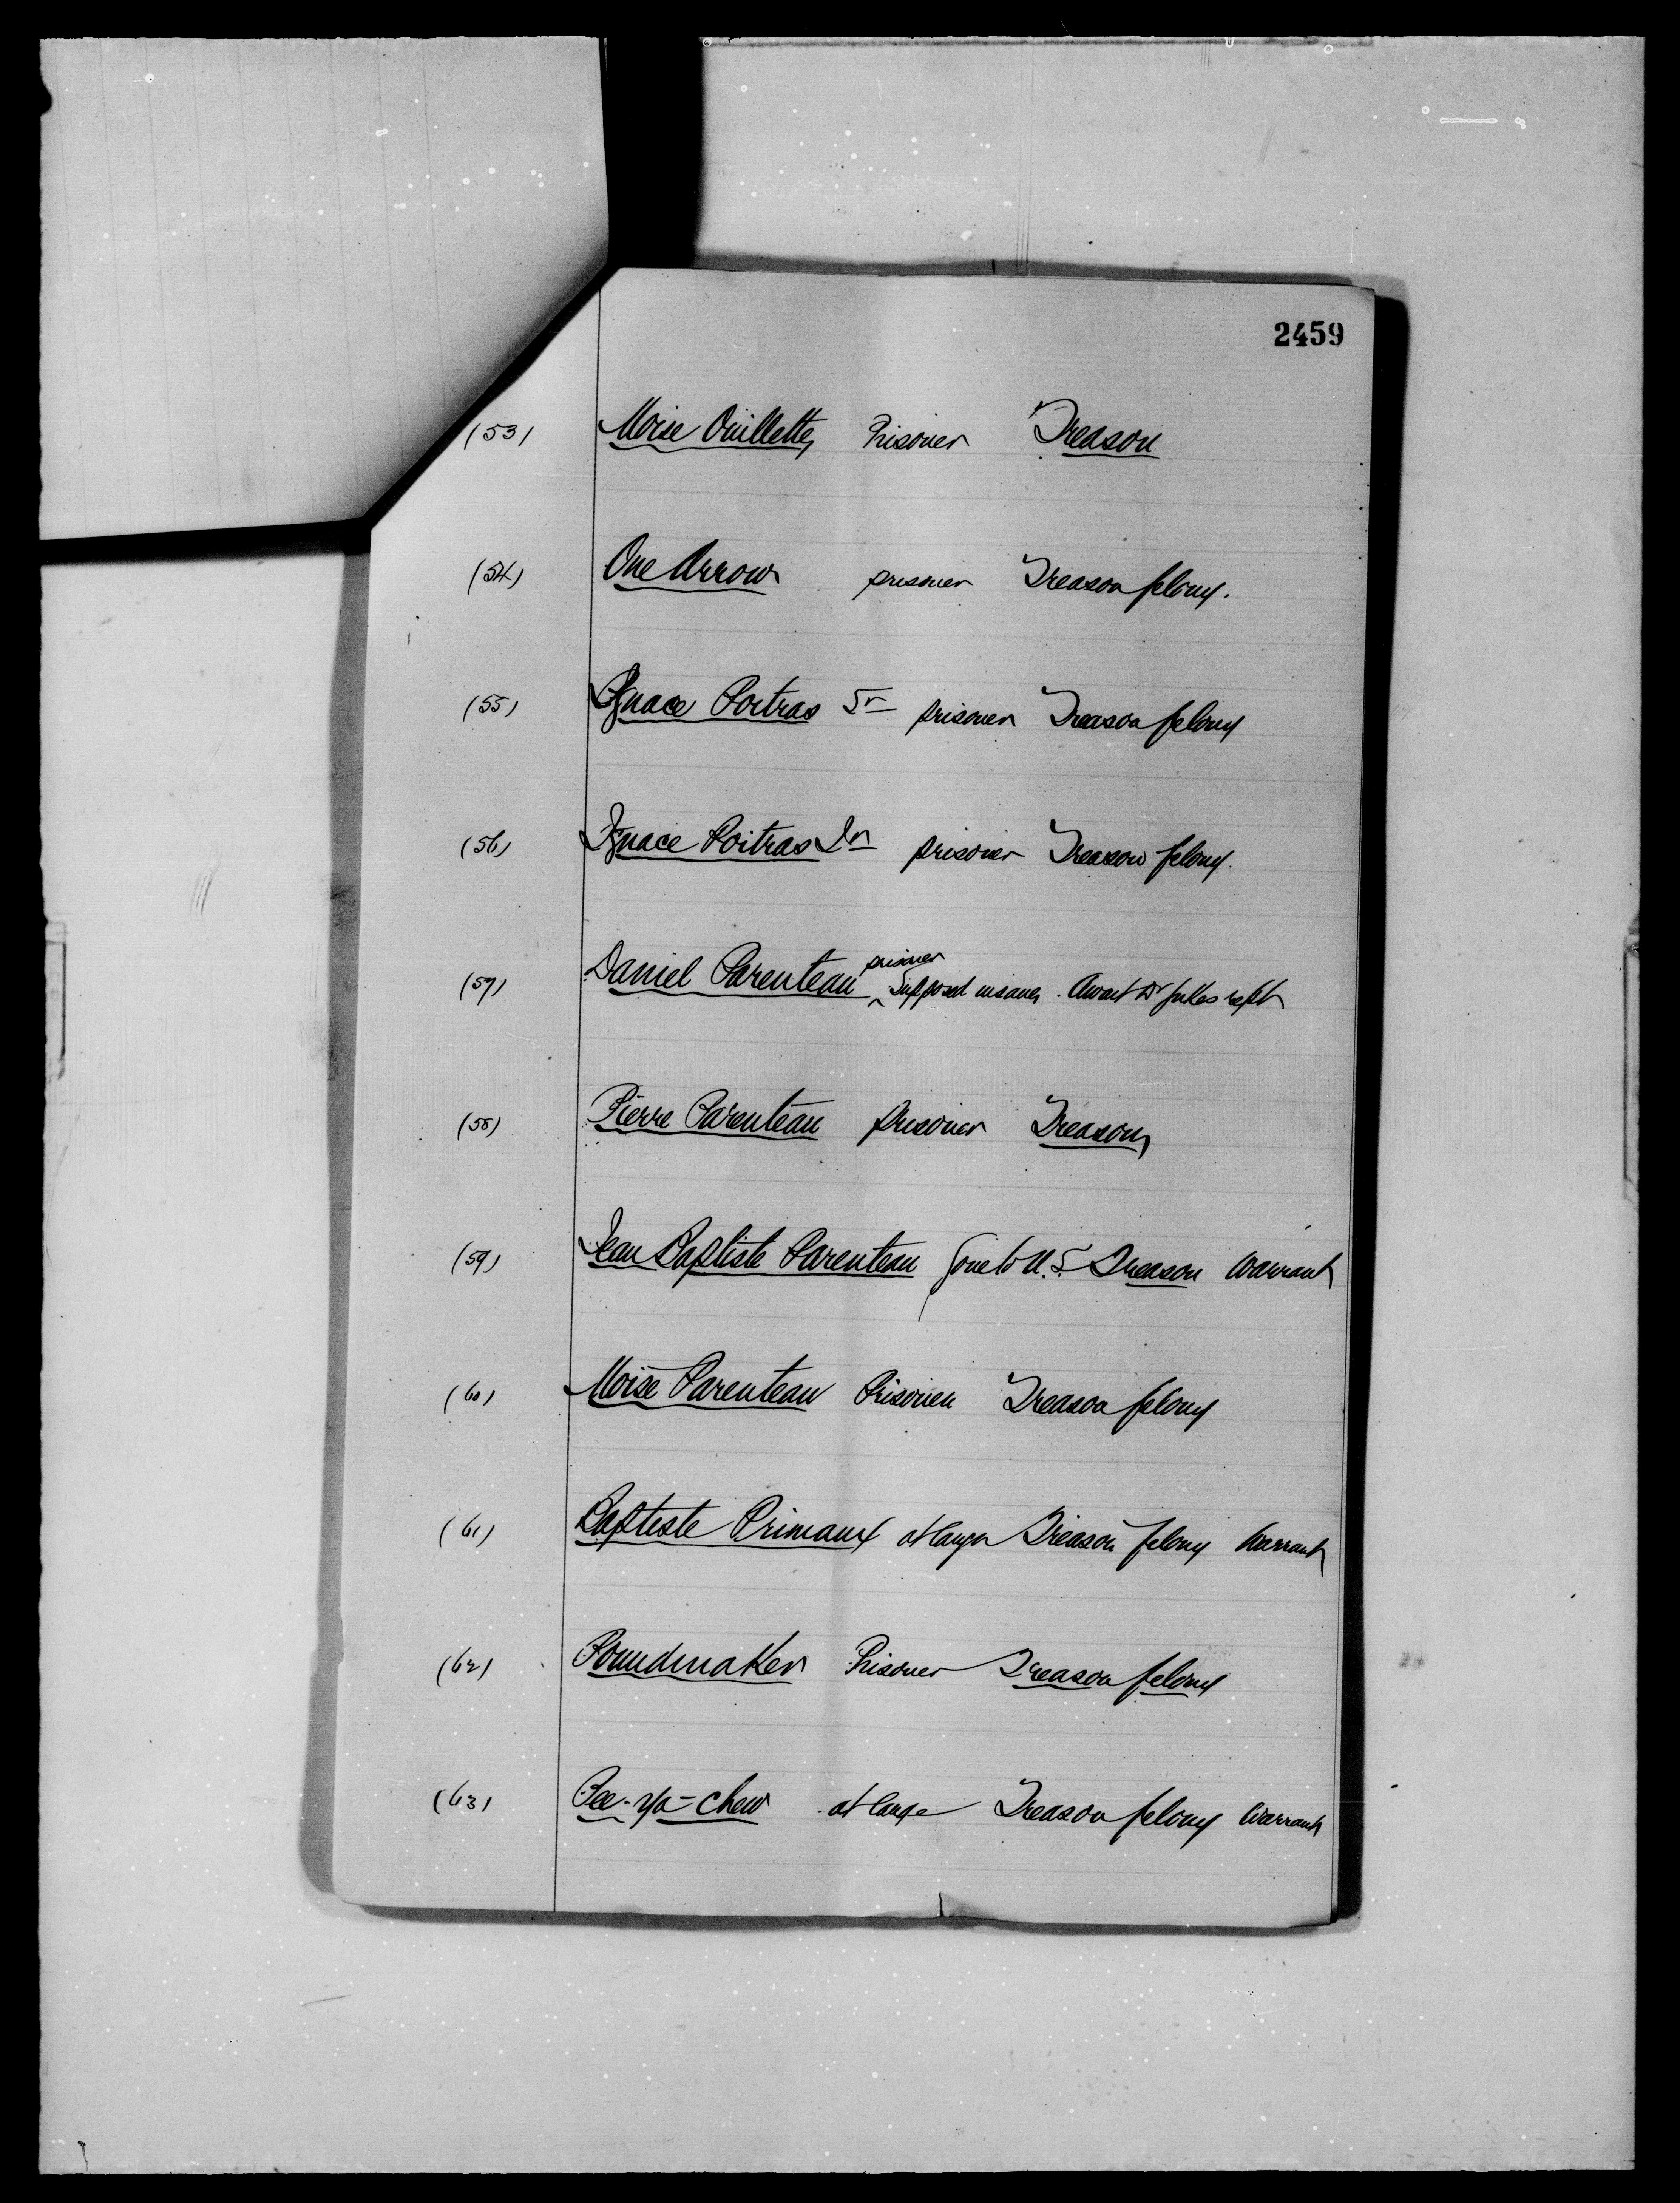 2459
(53) Moise Ouillette Prisoner Treason
(54) One Arrow prisoner Treason felony.
(55) Ignace Poitras Sr prisoner Treason felony
(56) Ignace Poitras Jr prisoner Treason felony.
(57) Daniel Parenteau prisoner Supposed insane. Await Dr Jukes rept
(58) Pierre Parenteau prisoner Treason
(59) Jean Baptiste Parenteau Gone to U.S Treason Warrant
(60) Moise Parenteau Prisoner Treason felony
(61) Baptiste Primaux at large Treason felony Warrant
(62) Poundmaker Prisoner Treason felony
(63) Pee-ya-chew at large Treason felony Warrant